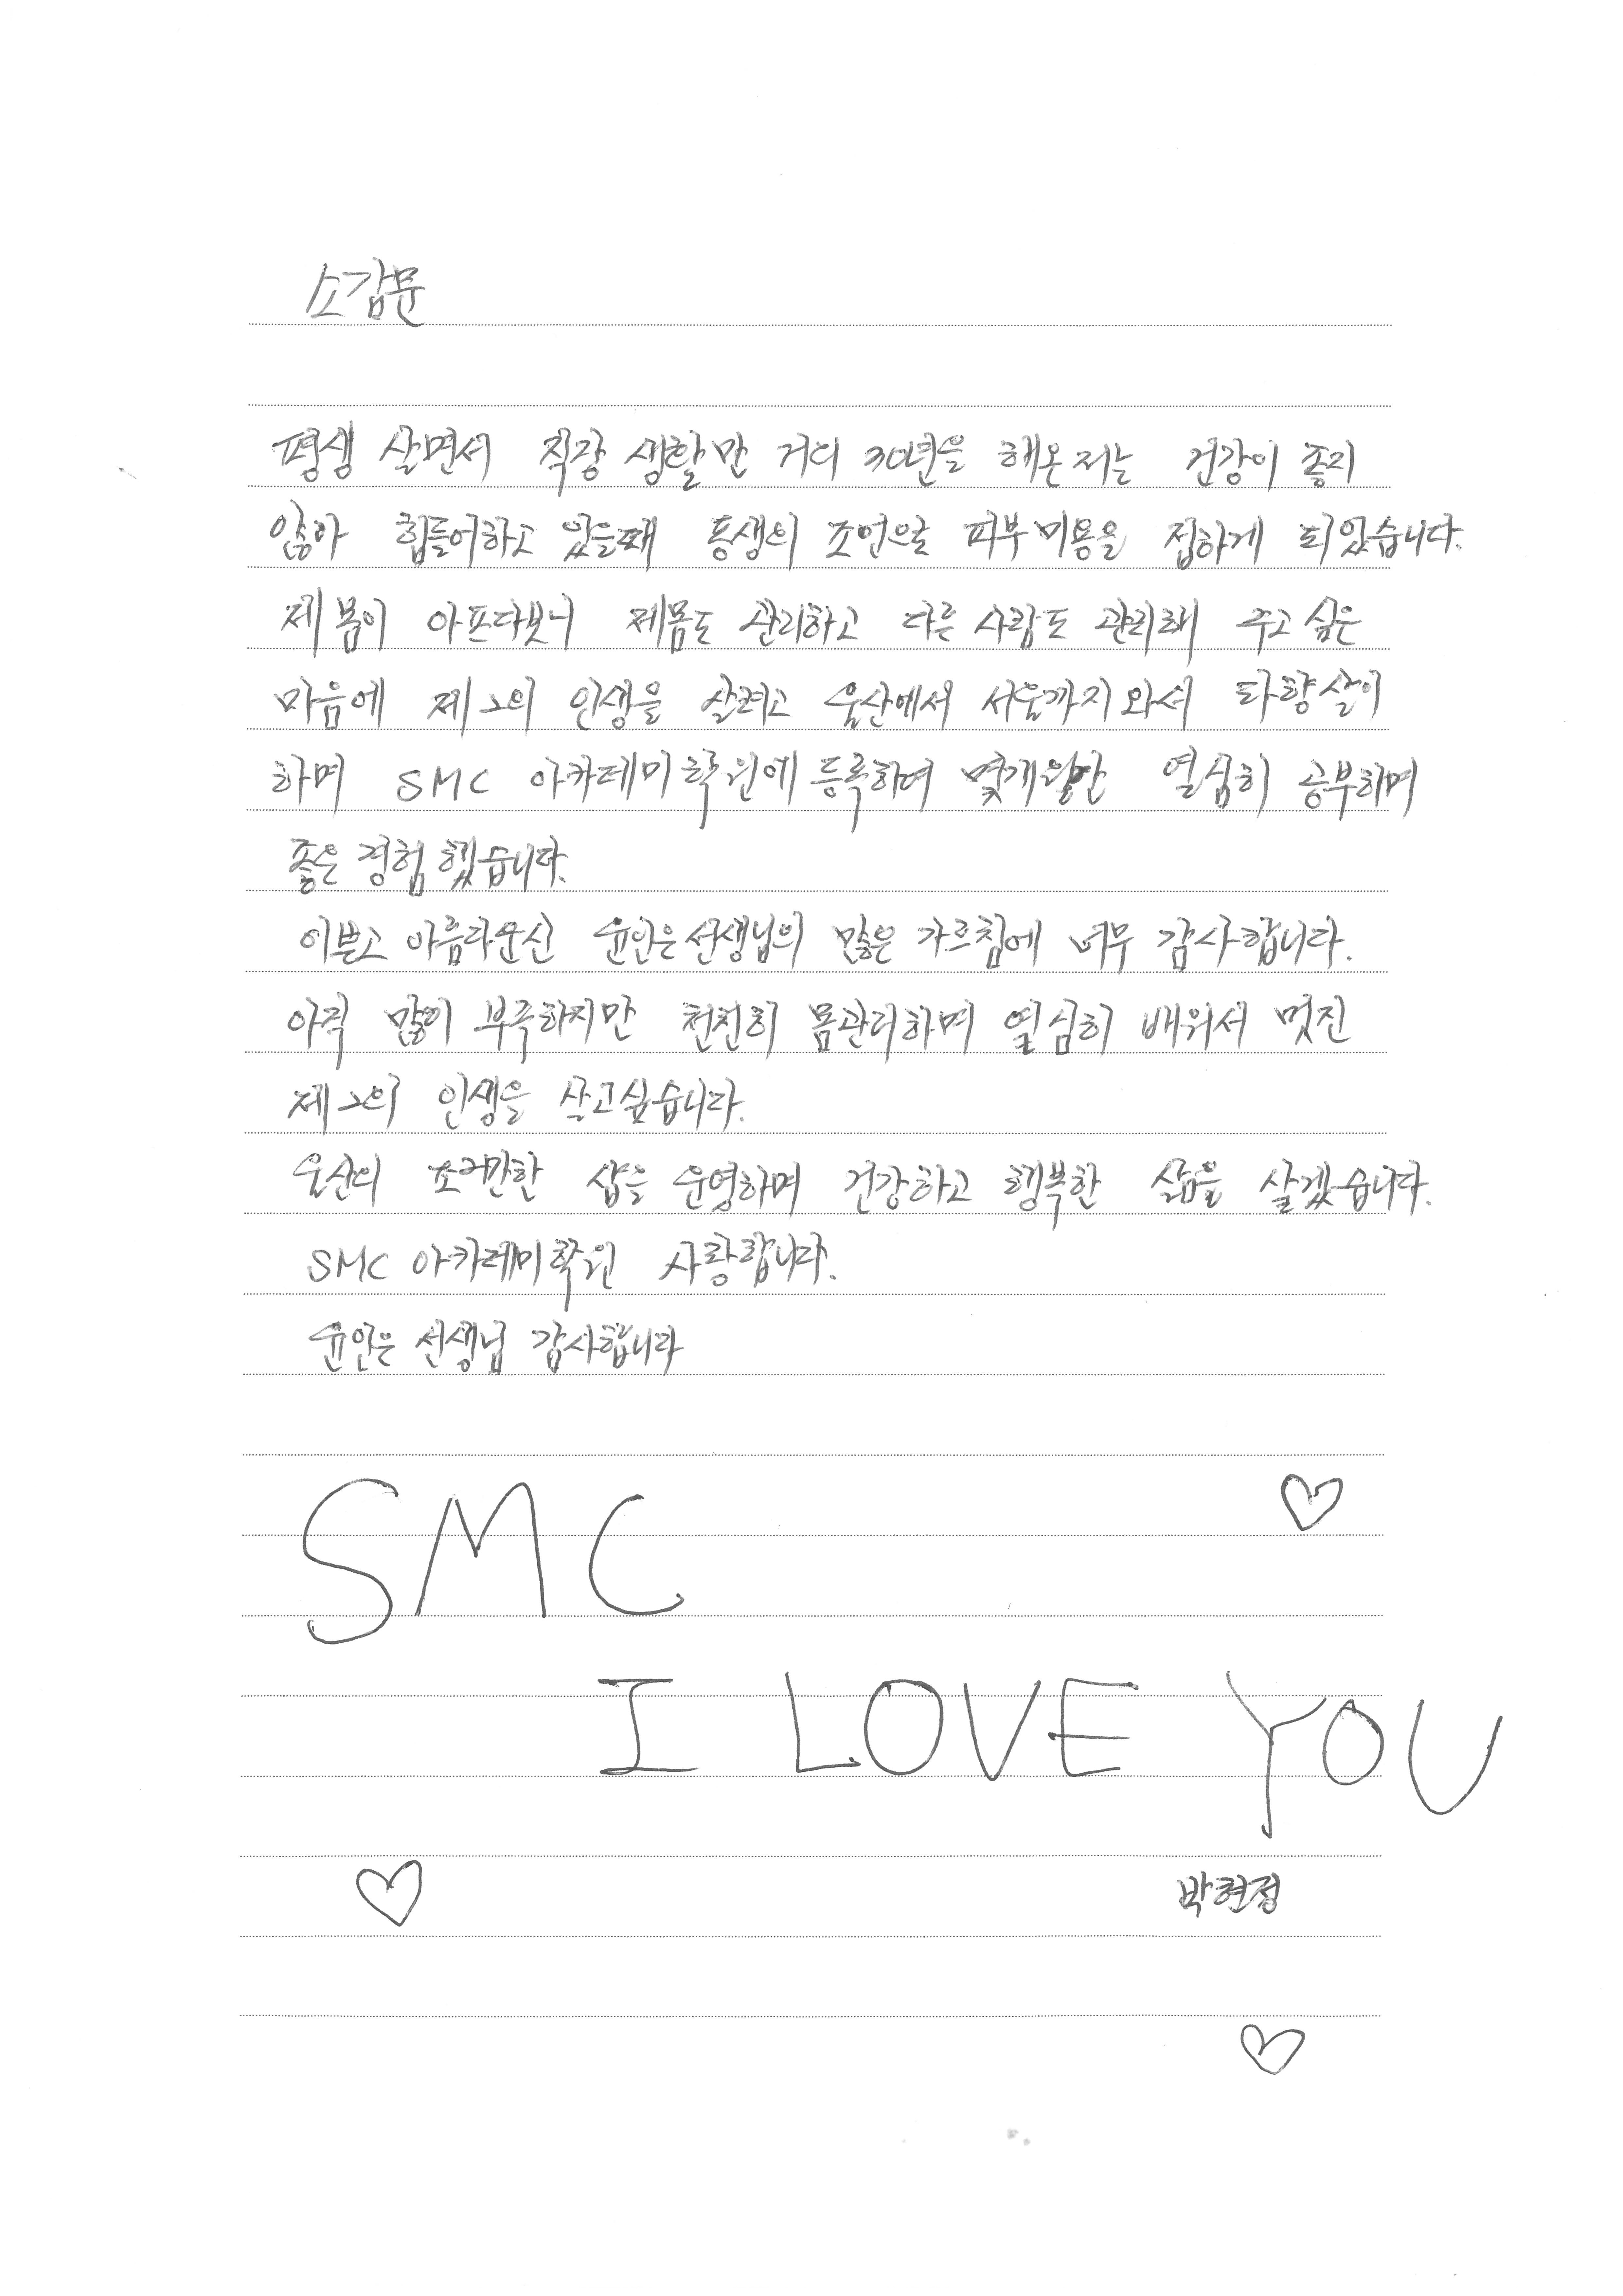 소감문
평생 살면서 직장 생활만 거의 30년을 해온 저는 건강이 좋지
않아 힘들어하고 있을때 동생의 조언으로 피부미용을 접하게 되었습니다.
제 몸이 아프다보니 제몸도 관리하고 다른 사람도 관리해 주고 싶은
마음에 제2의 인생을 살려고 울산에서 서울까지 와서 타향살이
하며 SMC 아카데미 학원에 등록하여 몇개월만 열심히 공부하며
좋은 경험 했습니다.
이쁘고 아름다운신 윤인은 선생님의 많은 가르침에 너무 감사합니다.
아직 많이 부족하지만 천천히 몸관리하며 열심히 배워서 멋진
제2의 인생을 살고싶습니다.
울산의 조그만한 샵을 운영하며 건강하고 행복한 삶을 살겠습니다.
SMC 아카데미 학원 사랑합니다.
윤인은 선생님 감사합니다
SMC
I LOVE YOU
박현정